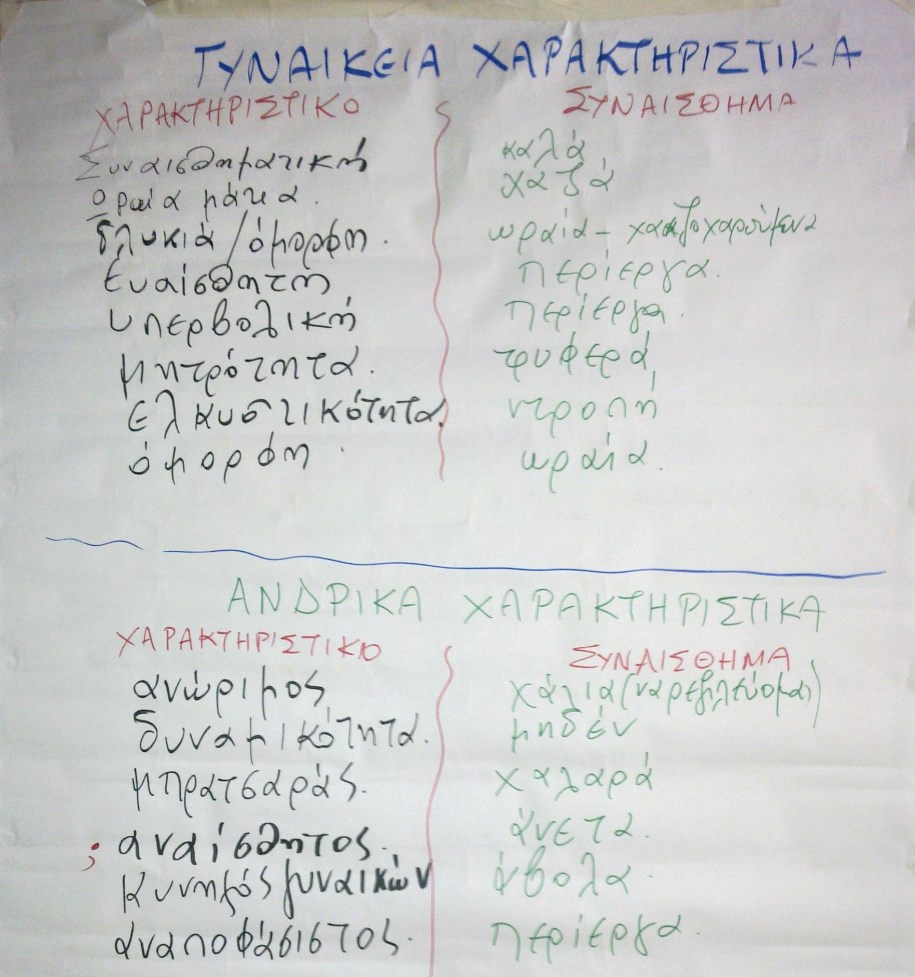 ΓΥΝΑΙΚΕΙΑ ΧΑΡΑΚΤΗΡΙΣΤΙΚΑ
ΧΑΡΑΚΤΗΡΙΣΤΙΚΟ ΣΥΝΑΙΣΘΗΜΑ
Συναισθηματική καλά
ωραία μάτια. χαζά
γλυκιά/όμορφη. ωραία -
ευαίσθητη περίεργα.
υπερβολική περίεργα.
μητρότητα. τρυφερά
ελκυστικότητα. ντροπή
όμορφη. ωραία.
ΑΝΔΡΙΚΑ ΧΑΡΑΚΤΗΡΙΣΤΙΚΑ
ΧΑΡΑΚΤΗΡΙΣΤΙΚΟ ΣΥΝΑΙΣΘΗΜΑ
ανώριμος χάλια
δυναμικότητα. μηδέν
μπρατσαράς. χαλαρά
; αναίσθητος. άνετα.
κυνηγός γυναικών άβολα.
αναποφάσιστος. περίεργα.